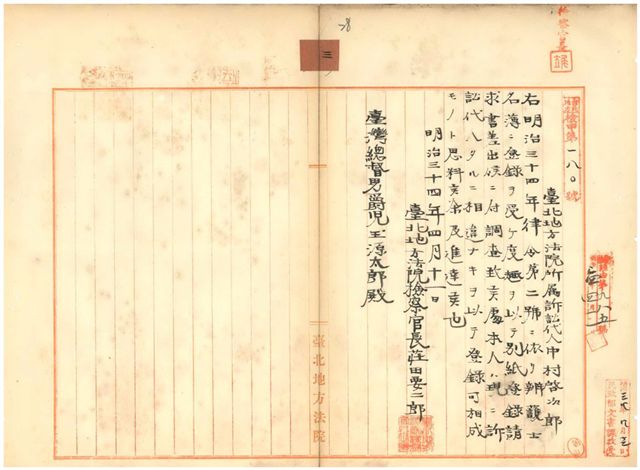 檢甲第一八〇號
臺北地方法院所属訴訟代人中村啓次郎
右明治三十四年律令第二號ニ依リ辨護士
名簿ニ登録ヲ受ケ度趣ヲ以テ別紙登録請
求書差出候ニ付調查致候處本人ハ現ニ訴
訟代人タルニ相違ナキヲ以テ登録可相成
モノト思料候条及進達候也
明治三十四年四月十一日
臺北地方法院檢察官長荘田要二郎
臺灣總督男爵児玉源太郎殿
三
78
臺北地方法院